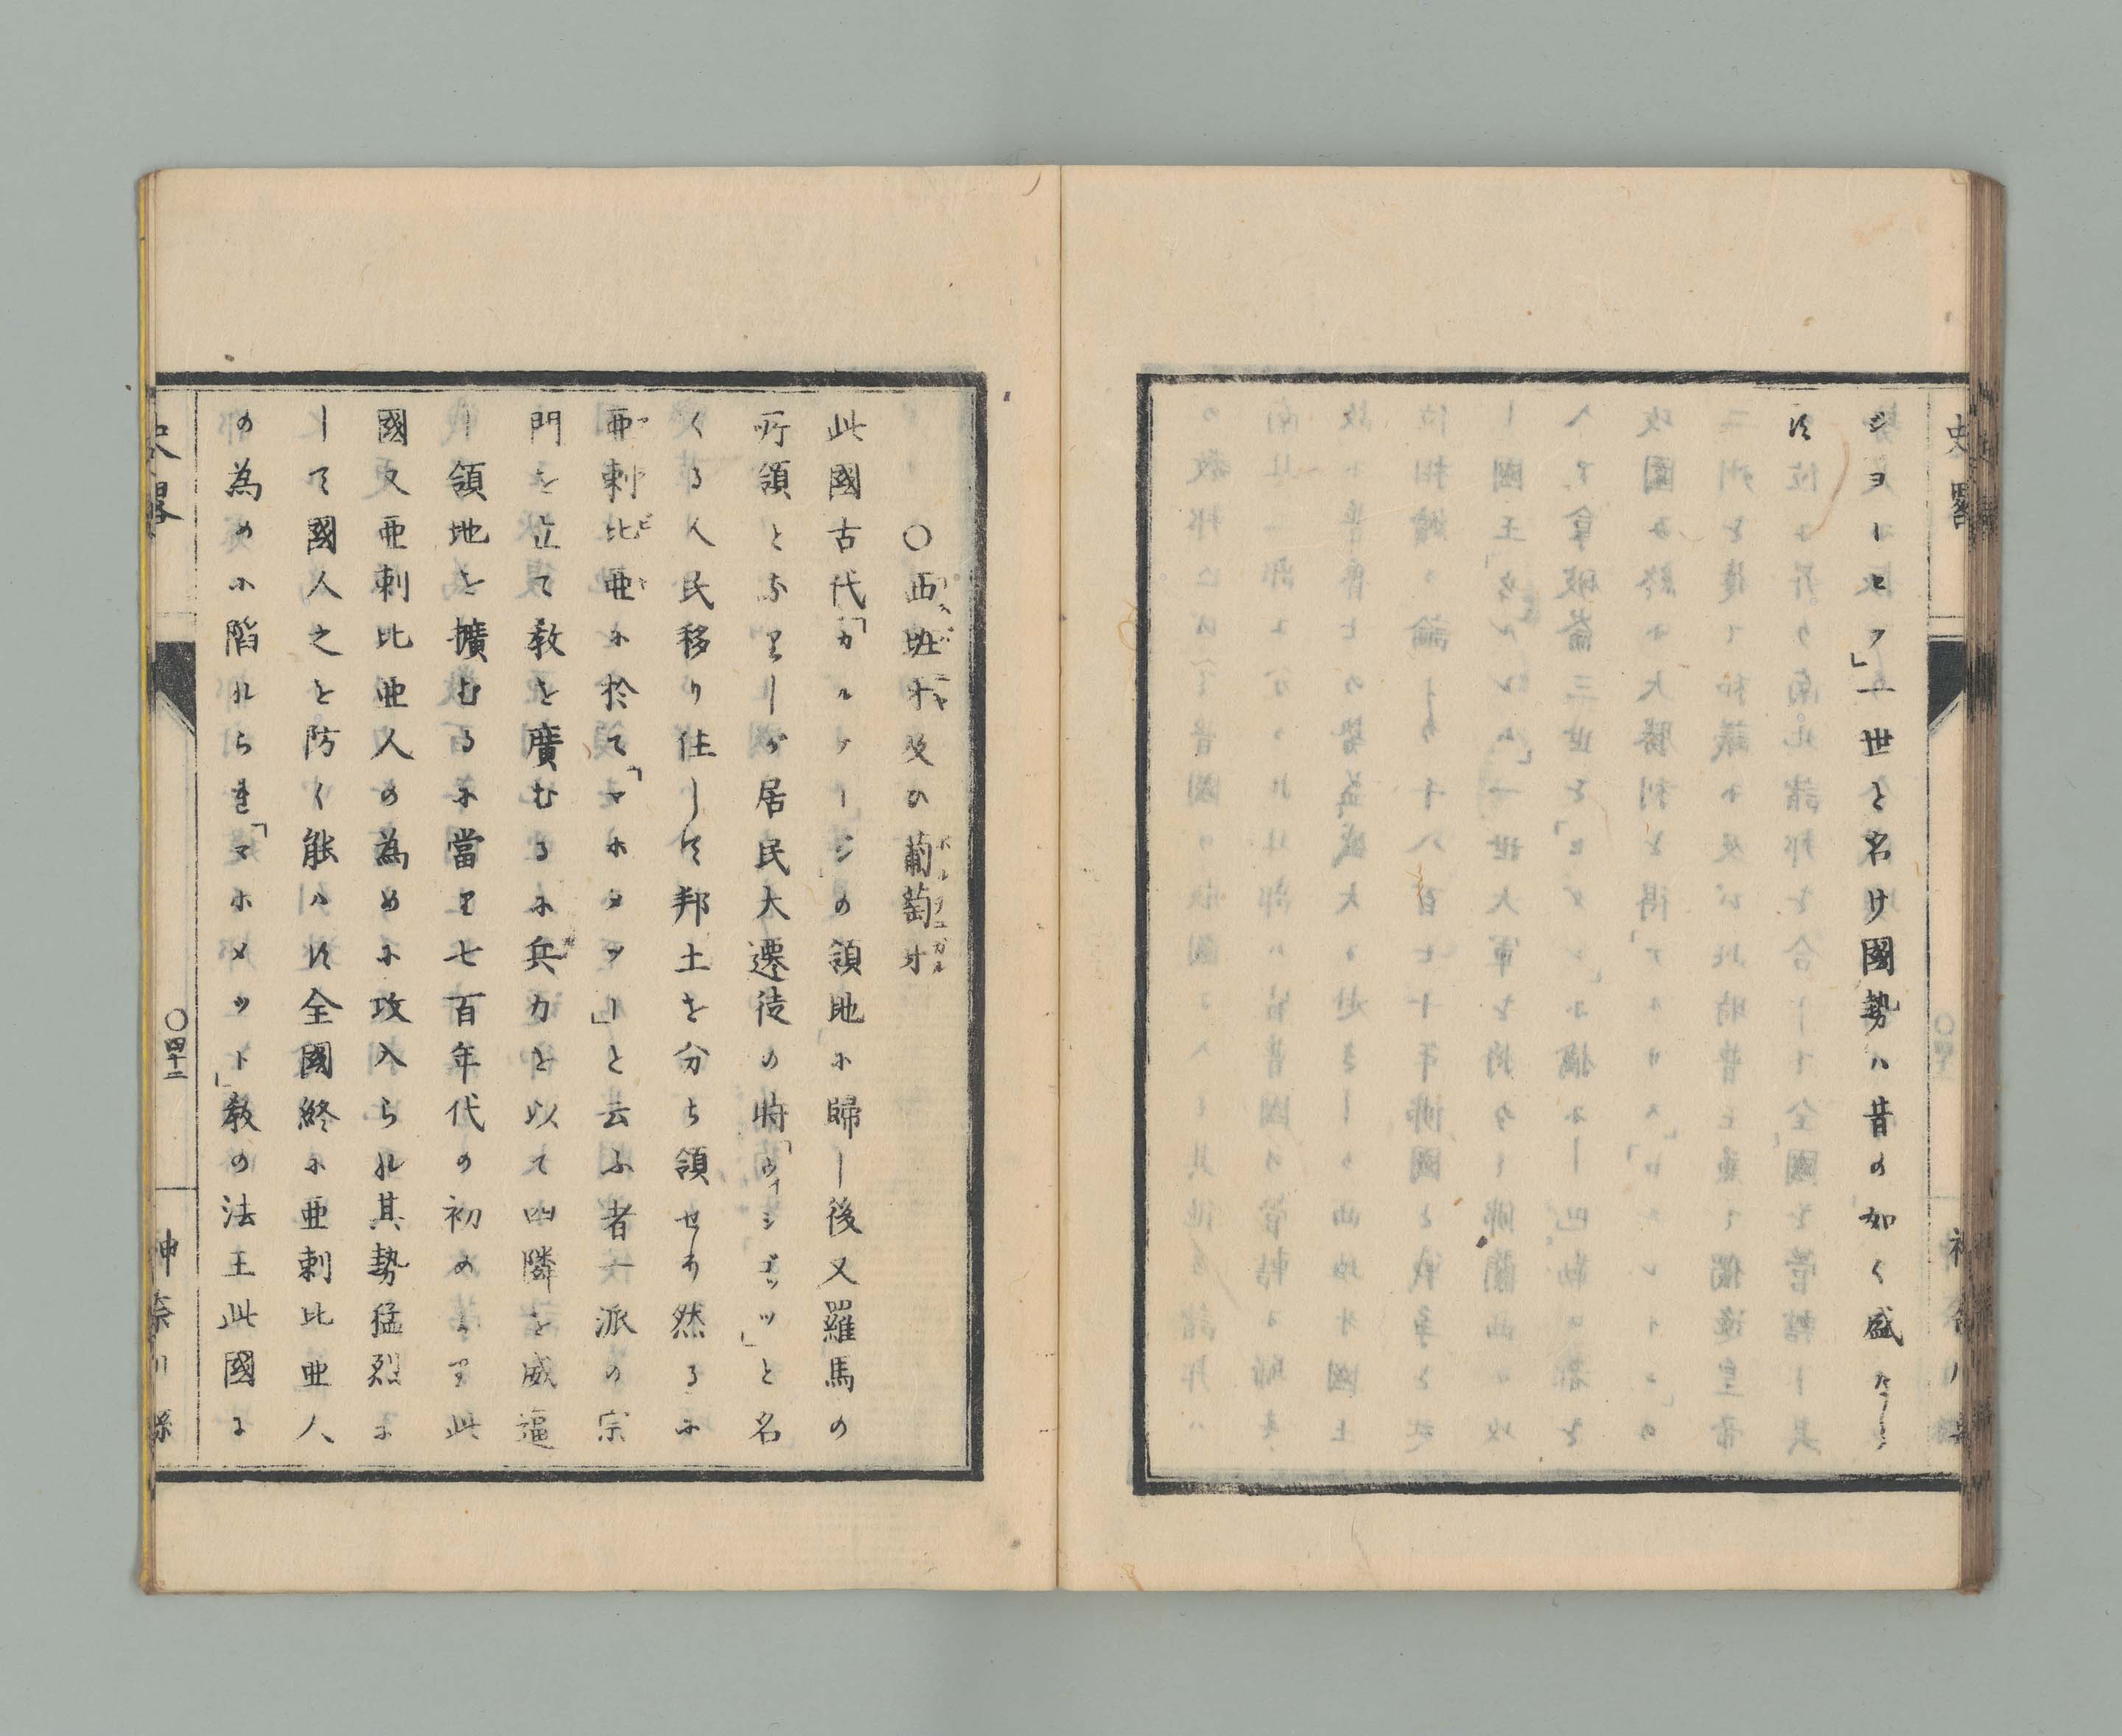 ジヨーヒフ」一世と名け國勢ハ昔の如く盛なら
す
史略
神奈川縣
○西班牙及ひ葡萄牙
イスパニヤ
ポルチユガル
此國古代「カルタージ」の領地に歸し後又羅馬の
所領となりしが居民大遷徒の時「ウイシゴツツ」と名
くる人民移り住して邦土を分ち領せり然るに
亜剌比亜に於て「マホメツト」と云ふ者一派の宗
門を立て教を廣むるに兵力を以て四隣を威逼
し領地を擴むるに當り七百年代の初めより此
國又亜剌比亜人の為めに攻入られ其勢猛烈に
して國人之を防く能ハす全國終に亜剌比亜人
の為めに陷れられ「マホメツト」教の法王此國に
史略
○四十二
神奈川縣